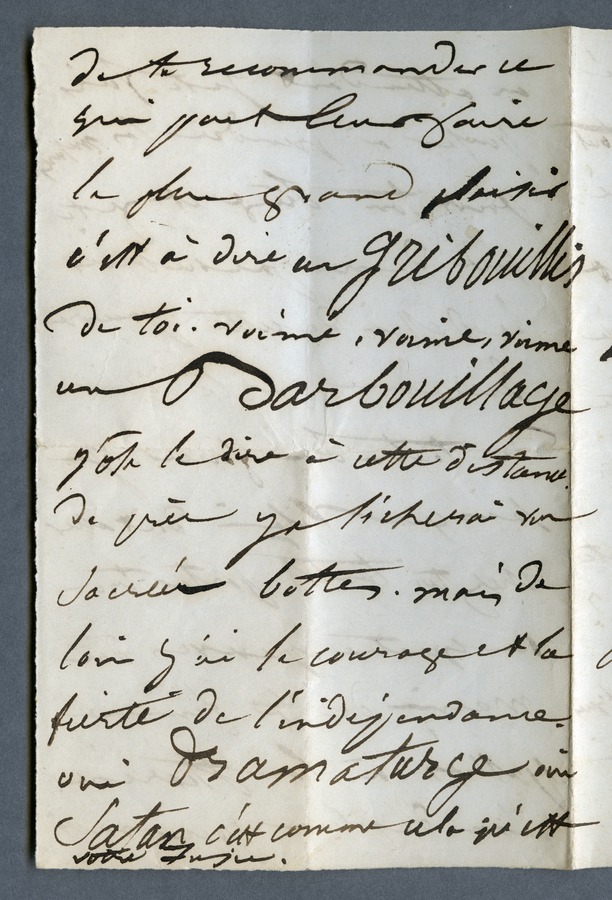 de te recommander ce
qui peut leur faire
le plus grand plaisir
c'est à dire un gribouillis
de toi. vaime, vaime, vaime
un Barbouillage
j'ose le dire à cette distance
de près je lècherai vos
sacrées bottes. mais de
loin j'ai le courage et la
fierté de l'indépendance.
oui Dramaturge oui
Satan c'est comme cela qu'est
votre Juju.